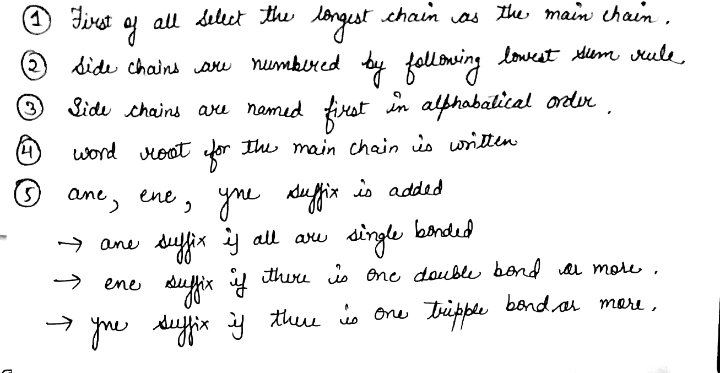 ① First of all select the longest chain as the main chain.
② Side chains are numbered by following lowest sum rule
③ Side chains are named first in alphabatical order.
④ word root for the main chain is written
⑤ ane, ene, yne suffix is added
→ ane suffix if all are single bonded
→ ene suffix if there is one double bond or more.
→ yne suffix if there is one tripple bond or more.